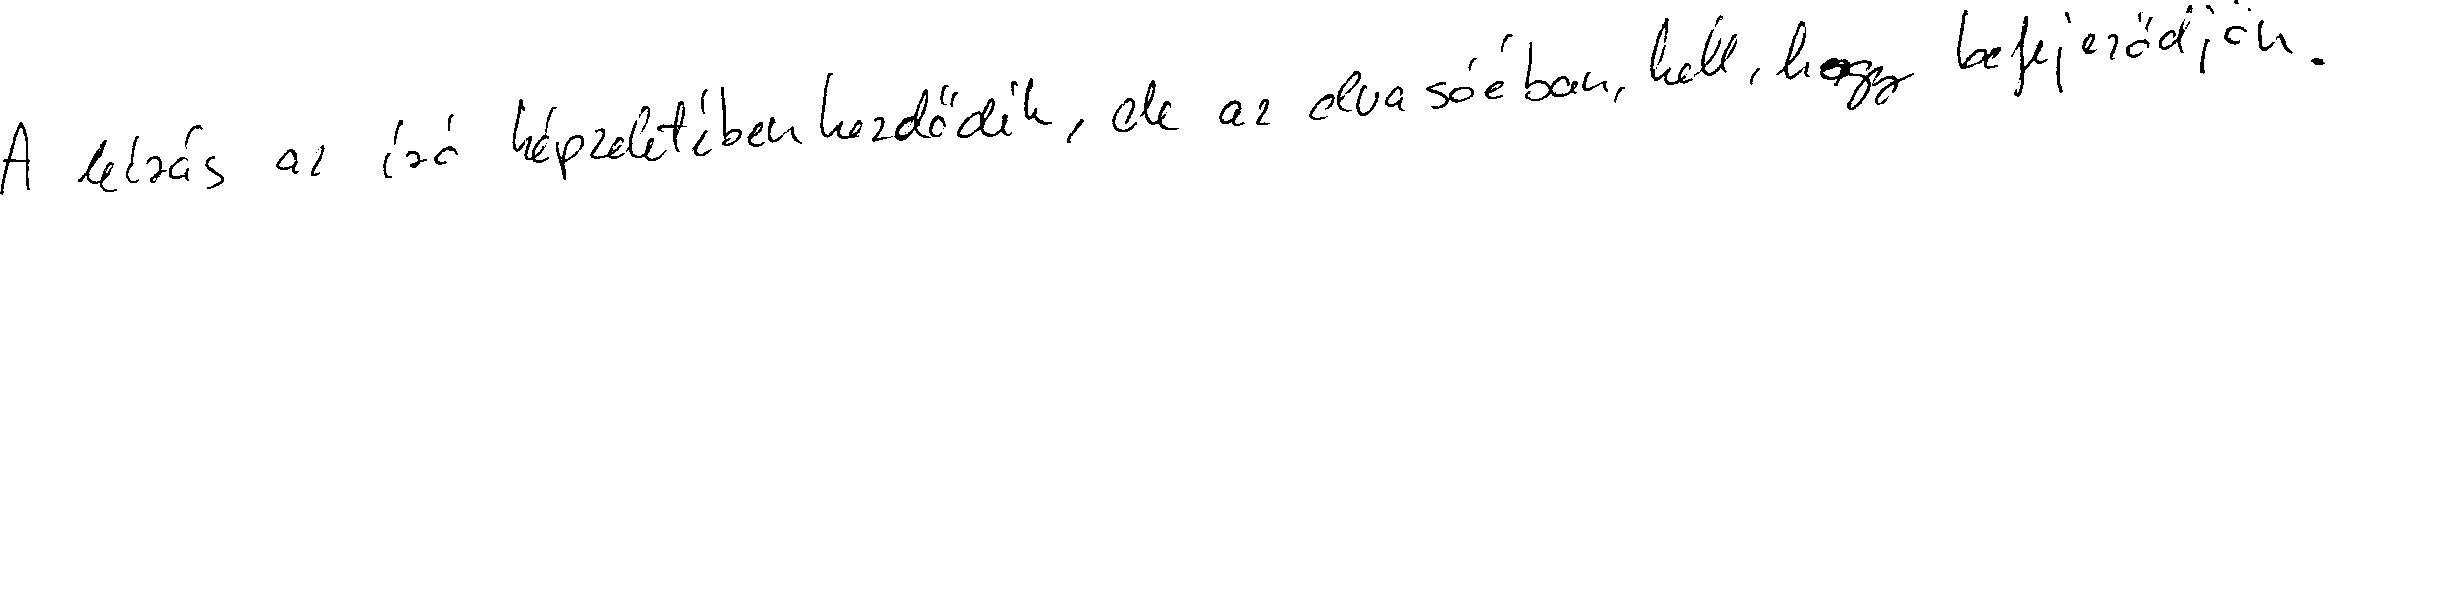 A leírás az író képzeletében kezdődik, de az olvasóéban, kell, hogy befejeződjön.